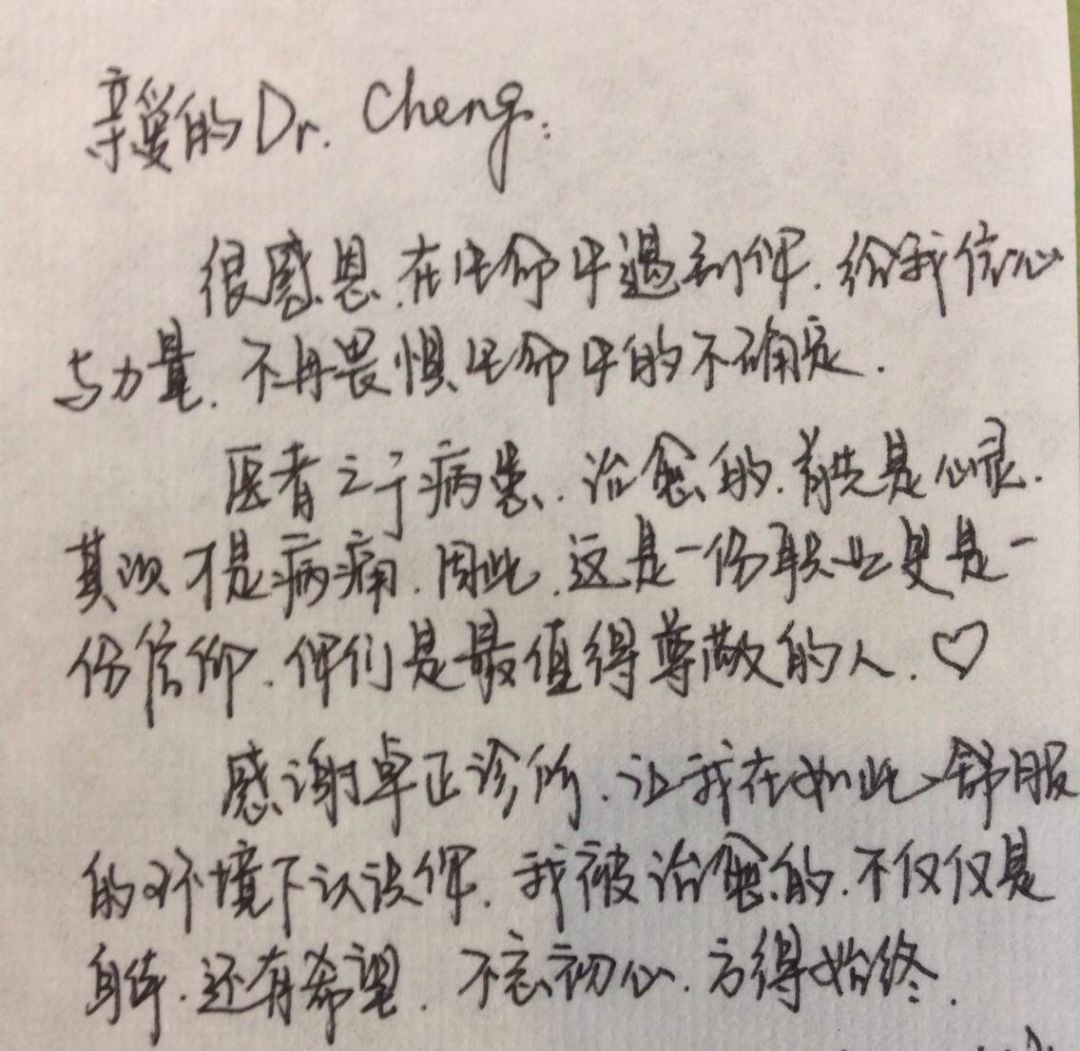 亲爱的Dr. Cheng:
很感恩.在生命中遇到你.给我信心
与力量.不再畏惧生命中的不确定.
医者之于病患.治愈的.首先是心灵.
其次才是病痛.因此.这是一份职业更是一
份信仰.你们是最值得尊敬的人.♡
感谢卓正诊所.让我在如此舒服
的环境下认识你.我被治愈的.不仅仅是
身体.还有希望.不忘初心.方得始终.